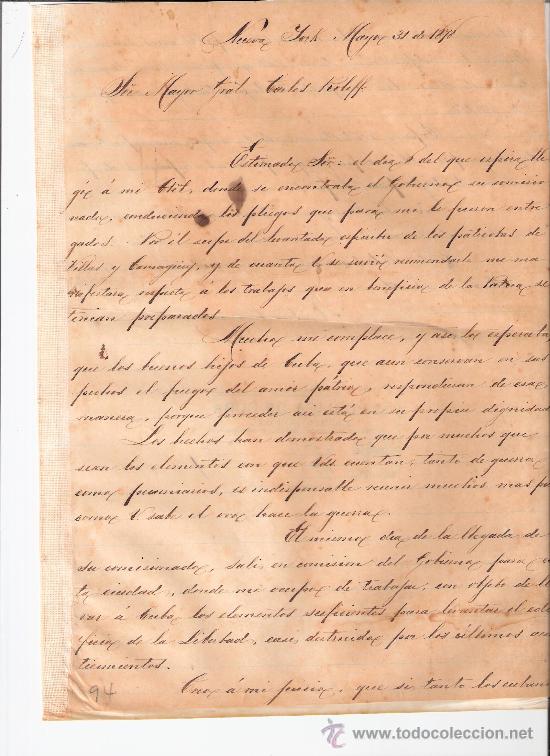 Nueva York Mayo 31 de 1878
Sor Mayor Gral. Carlos Roloff.
Estimado Sor: el dia 1 del que espira lle
gó á mi Ctel, donde se encontraba el Gobierno su comisio
nado, conduciendo los pliegos que para mi le fueron entre
gados. Por él supe del levantado espiritu de los patriotas de
Villas y Camagüey, y de cuanto V. se sirvió recomendarle me ma
nifestara, respecto á los trabajos que en beneficio de la Patria se
tenian preparados.
Mucho me complace, y asi lo esperaba,
que los buenos hijos de Cuba, que aun conservan en sus
pechos el fuego del amor pátrio, respondieran de esa
manera, porque proceder asi está en su propia dignidad
Los hechos han demostrado que por muchos que
sean los elementos con que Vds cuentan, tanto de guerra
como pecuniarios, es indispensable reunir muchos mas pues
como V. sabe el oro hace la guerra.
El mismo dia de la llegada de
su comisionado, sali en comision del Gobierno para es
ta ciudad, donde me ocupo de trabajar, con objeto de lle
var á Cuba los elementos suficientes para levantar el edi
ficio de la Libertad, casi destruido por los últimos acon
tecimientos.
Creo á mi juicio, que si tanto los cubano
94
todocoleccion
www.todocoleccion.net